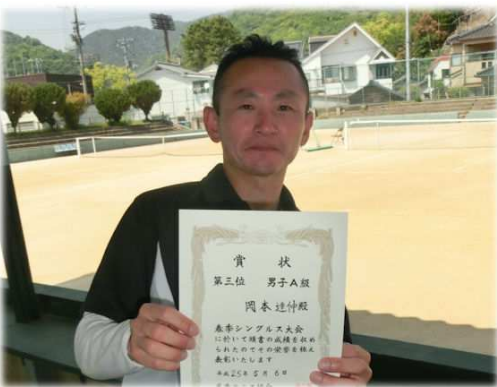 賞状
第三位 男子A級
岡本達伸殿
春季シングルス大会
に於いて頭書の成績を収め
られたのでその栄誉を称え
表彰いたします
平成25年5月6日